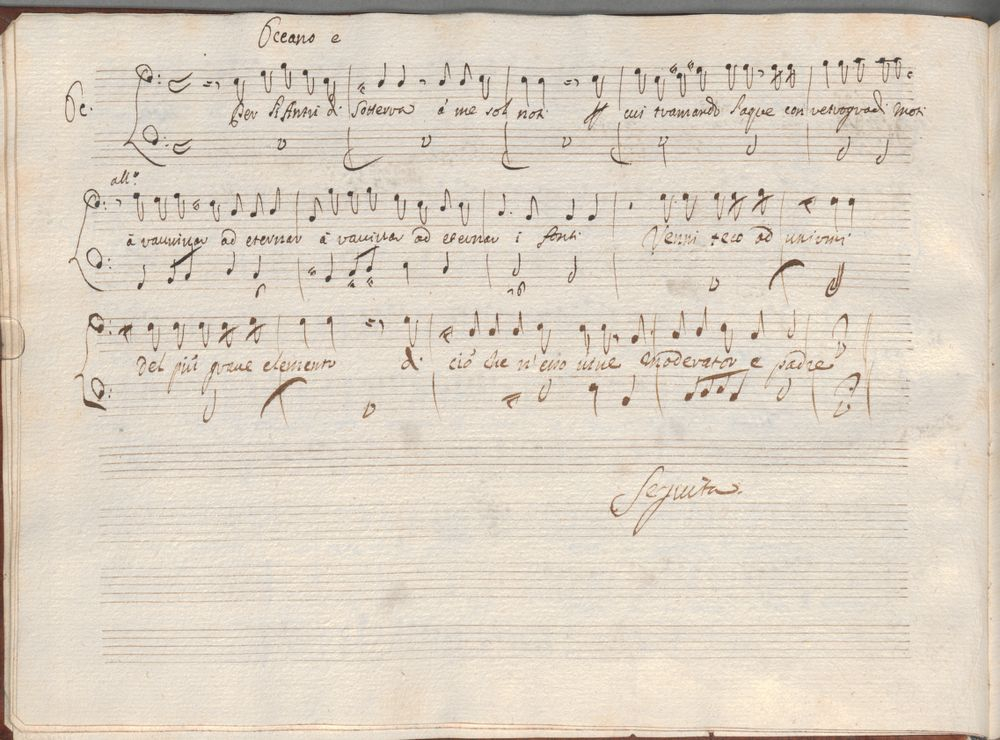 Oceano e
Oc.
Per gl'Antri di Sotterra à me sol noti cui tramando l'aque con retrogradi moti
all.º
à ravvivar ad eternar à ravvivar ad eternar i fonti Venni teco ad unirmi
Del più grave elemento di ciò che n'esso vive moderator e padre
Seguita.